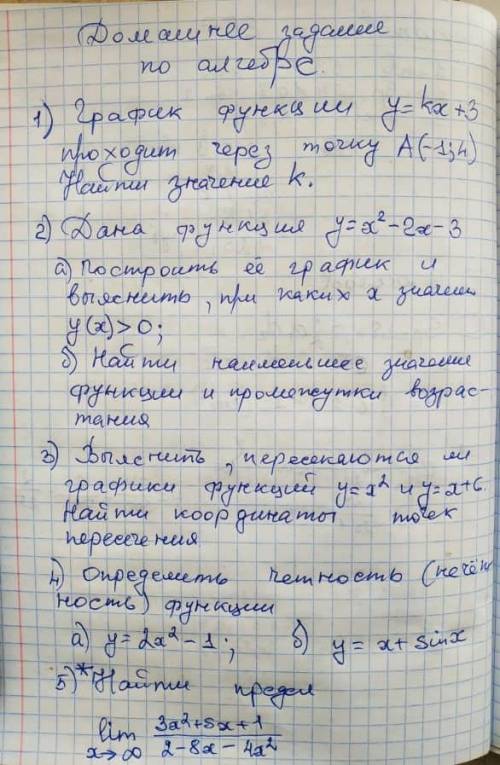 Домашнее задание
по алгебре.
1) График функции y=kx+3
проходит через точку A(-1;4)
Найти значение k.
2) Дана функция y=x²-2x-3
а) Построить её график и
выяснить, при каких x значен
y(x)>0;
б) Найти наименьшее значение
функции и промежутки возрас-
тания
3) Выяснить, пересекаются ли
графики функций y=x² и y=x+6.
Найти координаты точек
пересечения
4) Определить четность (нечёт
ность) функции
а) y=2x²-1; б) y=x+sinx
5)* Найти предел
lim 3x²+5x+1
x→∞ 2-8x-4x²